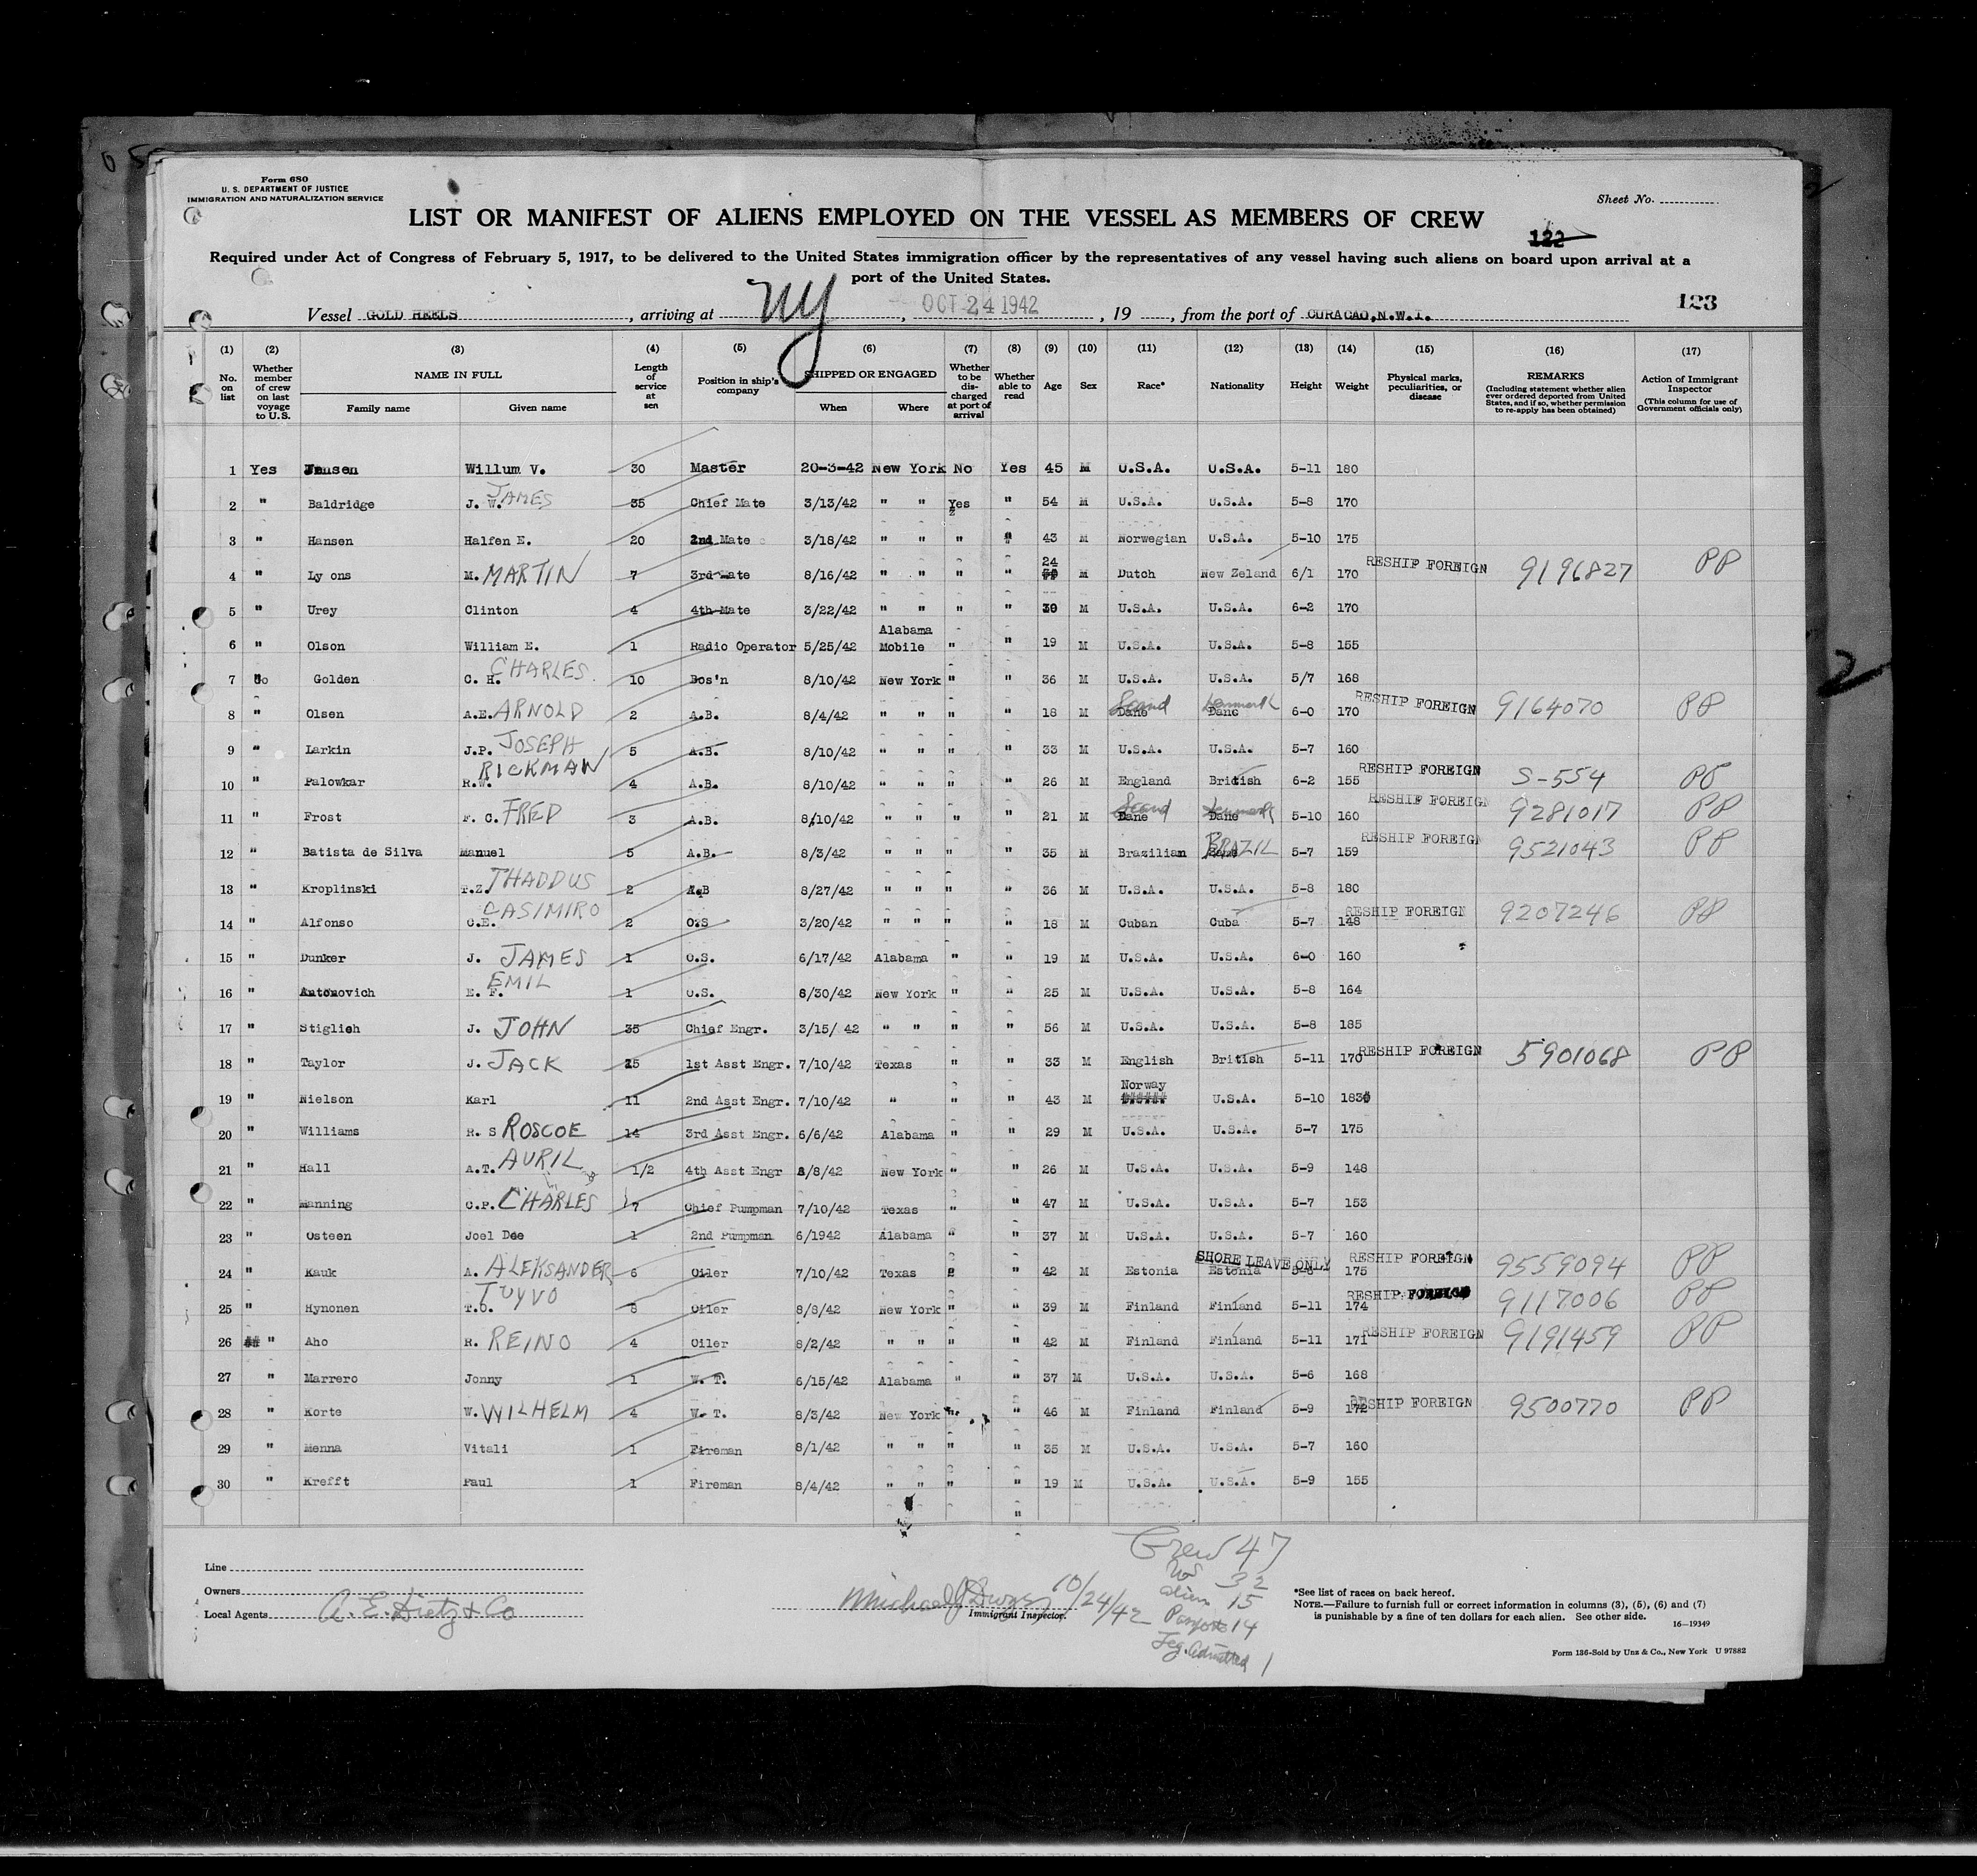 Form 680
U. S. DEPARTMENT OF JUSTICE
IMMIGRATION AND NATURALIZATION SERVICE
Sheet No.
LIST OR MANIFEST OF ALIENS EMPLOYED ON THE VESSEL AS MEMBERS OF CREW
122
Required under Act of Congress of February 5, 1917, to be delivered to the United States immigration officer by the representatives of any vessel having such aliens on board upon arrival at a
port of the United States.
123
Vessel GOLD HEELS, arriving at NY, OCT 24 1942, 19, from the port of CURACAO,N.W.I.
(1) (2) (3) (4) (5) (6) (7) (8) (9) (10) (11) (12) (13) (14) (15) (16) (17)
No. on list
Whether member of crew on last voyage to U.S.
NAME IN FULL
Family name Given name
Length of service at sea
Position in ship's company
SHIPPED OR ENGAGED
When Where
Whether to be discharged at port of arrival
Whether able to read
Age
Sex
Race*
Nationality
Height
Weight
Physical marks, peculiarities, or disease
REMARKS
(Including statement whether alien ever ordered deported from United States, and if so, whether permission to re-apply has been obtained)
Action of Immigrant Inspector
(This column for use of Government officials only)
1 Yes Jensen Willum V. 30 Master 20-3-42 New York No Yes 45 M U.S.A. U.S.A. 5-11 180
2 " Baldridge J. W. JAMES 35 Chief Mate 3/13/42 " " Yes " 54 M U.S.A. U.S.A. 5-8 170
3 " Hansen Halfen E. 20 2nd Mate 3/18/42 " " " " 43 M Norwegian U.S.A. 5-10 175
4 " Lyons M. MARTIN 7 3rd Mate 8/16/42 " " " " 24 M Dutch New Zeland 6/1 170 RESHIP FOREIGN 9196827 PP
5 " Urey Clinton 4 4th Mate 3/22/42 " " " " 30 M U.S.A. U.S.A. 6-2 170
6 " Olson William E. 1 Radio Operator 5/25/42 Alabama Mobile " " 19 M U.S.A. U.S.A. 5-8 155
7 Golden C. H. CHARLES 10 Bos'n 8/10/42 New York " " 36 M U.S.A. U.S.A. 5/7 168
8 " Olsen A.E. ARNOLD 2 A.B. 8/4/42 " " " " 18 M Dane Scand Dane Denmark 6-0 170 RESHIP FOREIGN 9164070 PP
9 " Larkin J.P. JOSEPH 5 A.B. 8/10/42 " " " " 33 M U.S.A. U.S.A. 5-7 160
10 " Palowkar R.W. RICKMAN 4 A.B. 8/10/42 " " " " 26 M England British 6-2 155 RESHIP FOREIGN S-554 PP
11 " Frost F. C. FRED 3 A.B. 8/10/42 " " " " 21 M Dane Scand Dane Denmark 5-10 160 RESHIP FOREIGN 9281017 PP
12 " Batista de Silva Manuel 5 A.B. 8/3/42 " " " " 35 M Brazilian BRAZIL 5-7 159 RESHIP FOREIGN 9521043 PP
13 " Kroplinski T.Z. THADDUS 2 A.B 8/27/42 " " " " 36 M U.S.A. U.S.A. 5-8 180
14 " Alfonso C.E. CASIMIRO 2 O.S 3/20/42 " " " " 18 M Cuban Cuba 5-7 148 RESHIP FOREIGN 9207246 PP
15 " Dunker J. JAMES 1 O.S. 6/17/42 Alabama " " 19 M U.S.A. U.S.A. 6-0 160
16 " Antonovich E. F. EMIL 1 O.S. 8/30/42 New York " " 25 M U.S.A. U.S.A. 5-8 164
17 " Stiglich J. JOHN 35 Chief Engr. 3/15/ 42 " " " " 56 M U.S.A. U.S.A. 5-8 185
18 " Taylor J. JACK 15 1st Asst Engr. 7/10/42 Texas " " 33 M English British 5-11 170 RESHIP FOREIGN 5901068 PP
19 " Nielson Karl 11 2nd Asst Engr. 7/10/42 " " " 43 M Norway U.S.A. 5-10 183
20 " Williams R. S ROSCOE 14 3rd Asst Engr. 6/6/42 Alabama " " 29 M U.S.A. U.S.A. 5-7 175
21 " Hall A.T. AURIL 1/2 4th Asst Engr 8/8/42 New York " " 26 M U.S.A. U.S.A. 5-9 148
22 " Manning C.P. CHARLES 7 Chief Pumpman 7/10/42 Texas " " 47 M U.S.A. U.S.A. 5-7 153
23 " Osteen Joel Dee 1 2nd Pumpman 6/1942 Alabama " " 37 M U.S.A. U.S.A. 5-7 160
24 " Kauk A. ALEKSANDER 6 Oiler 7/10/42 Texas " " 42 M Estonia Estonia SHORE LEAVE ONLY 175 RESHIP FOREIGN 9559094 PP
25 " Hynonen T.O. TUYVO 8 Oiler 8/8/42 New York " " 39 M Finland Finland 5-11 174 RESHIP FOREIGN 9117006 PP
26 " Aho R. REINO 4 Oiler 8/2/42 " " " " 42 M Finland Finland 5-11 171 RESHIP FOREIGN 9191459 PP
27 " Marrero Jonny 1 W. T. 6/15/42 Alabama " " 37 M U.S.A. U.S.A. 5-6 168
28 " Korte W. WILHELM 4 W. T. 8/3/42 New York " " 46 M Finland Finland 5-9 172 RESHIP FOREIGN 9500770 PP
29 " Menna Vitali 1 Fireman 8/1/42 " " " " 35 M U.S.A. U.S.A. 5-7 160
30 " Krefft Paul 1 Fireman 8/4/42 " " " " 19 M U.S.A. U.S.A. 5-9 155
Crew 47
US 32
Alien 15
Passports 14
Leg. Admitted 1
Line
Owners
Local Agents A. E. Dietz & Co
Michael J 10/24/42
Immigrant Inspector.
*See list of races on back hereof.
NOTE.—Failure to furnish full or correct information in columns (3), (5), (6) and (7)
is punishable by a fine of ten dollars for each alien. See other side.
16—19349
Form 136-Sold by Unz & Co., New York U 97882
2